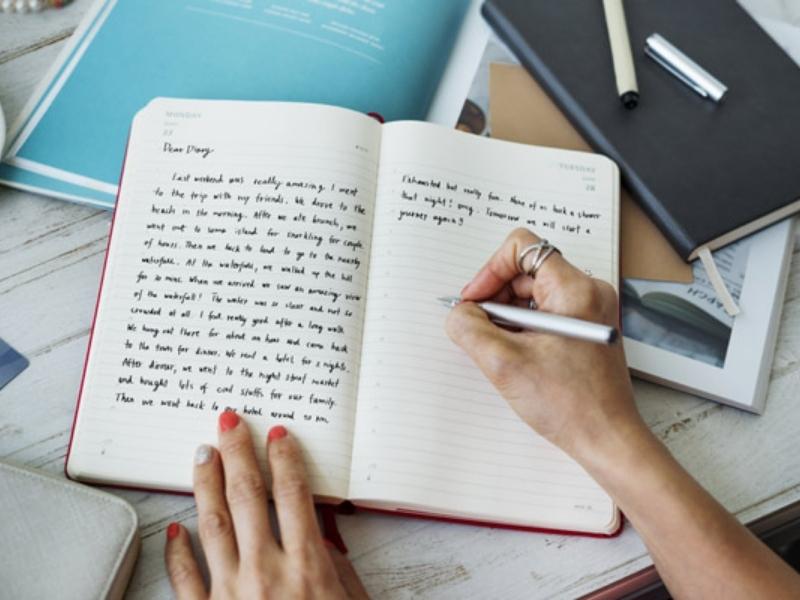 MONDAY
Dear Diary
Last weekend was really amazing. I went
to the trip with my friends. We drove to the
beach in the morning. After we ate brunch, we
went out to some island for snorkling for couple
of hours. Then we back to land to go to the nearby
waterfall. At the waterfall, we walked up the hill
for 30 mins. When we arrived we saw an amazing view
of the waterfall! The water was so clear and not so
crowded at all. I feel really good after a long walk.
We hang out there for about an hour and came back
to the town for dinner. We rent a hotel for 2 nights.
After dinner, we went to the night street market
and bought lots of cool stuffs for our family.
Then we went back to hotel around 10 pm.
TUESDAY
Exhausted but really fun. None of us took a shower
that night! omg. Tomorrow we will start a
journey again!